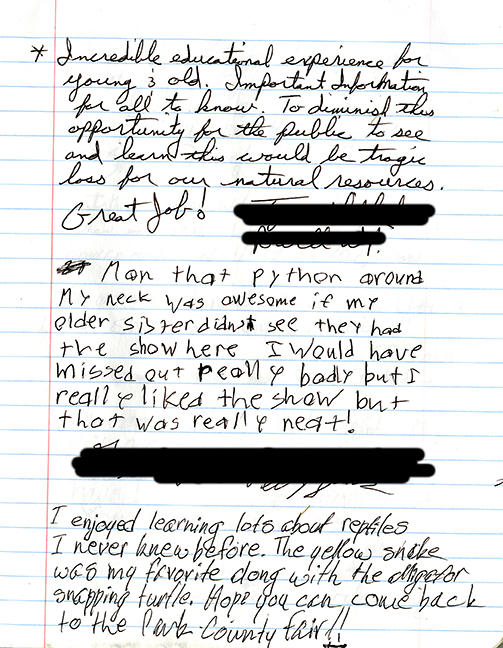 * Incredible educational experience for
young & old. Important Information
for all to know. To diminish this
opportunity for the public to see
and learn this would be tragic
loss for our natural resources.
Great Job!
Man that python around
My neck was awesome if my
older sister didn't see they had
the show here I would have
missed out really badly but I
really liked the show but
that was really neat!
I enjoyed learning lots about reptiles
I never knew before. The yellow snake
was my favorite along with the alligator
snapping turtle. Hope you can come back
to the Park County fair!!